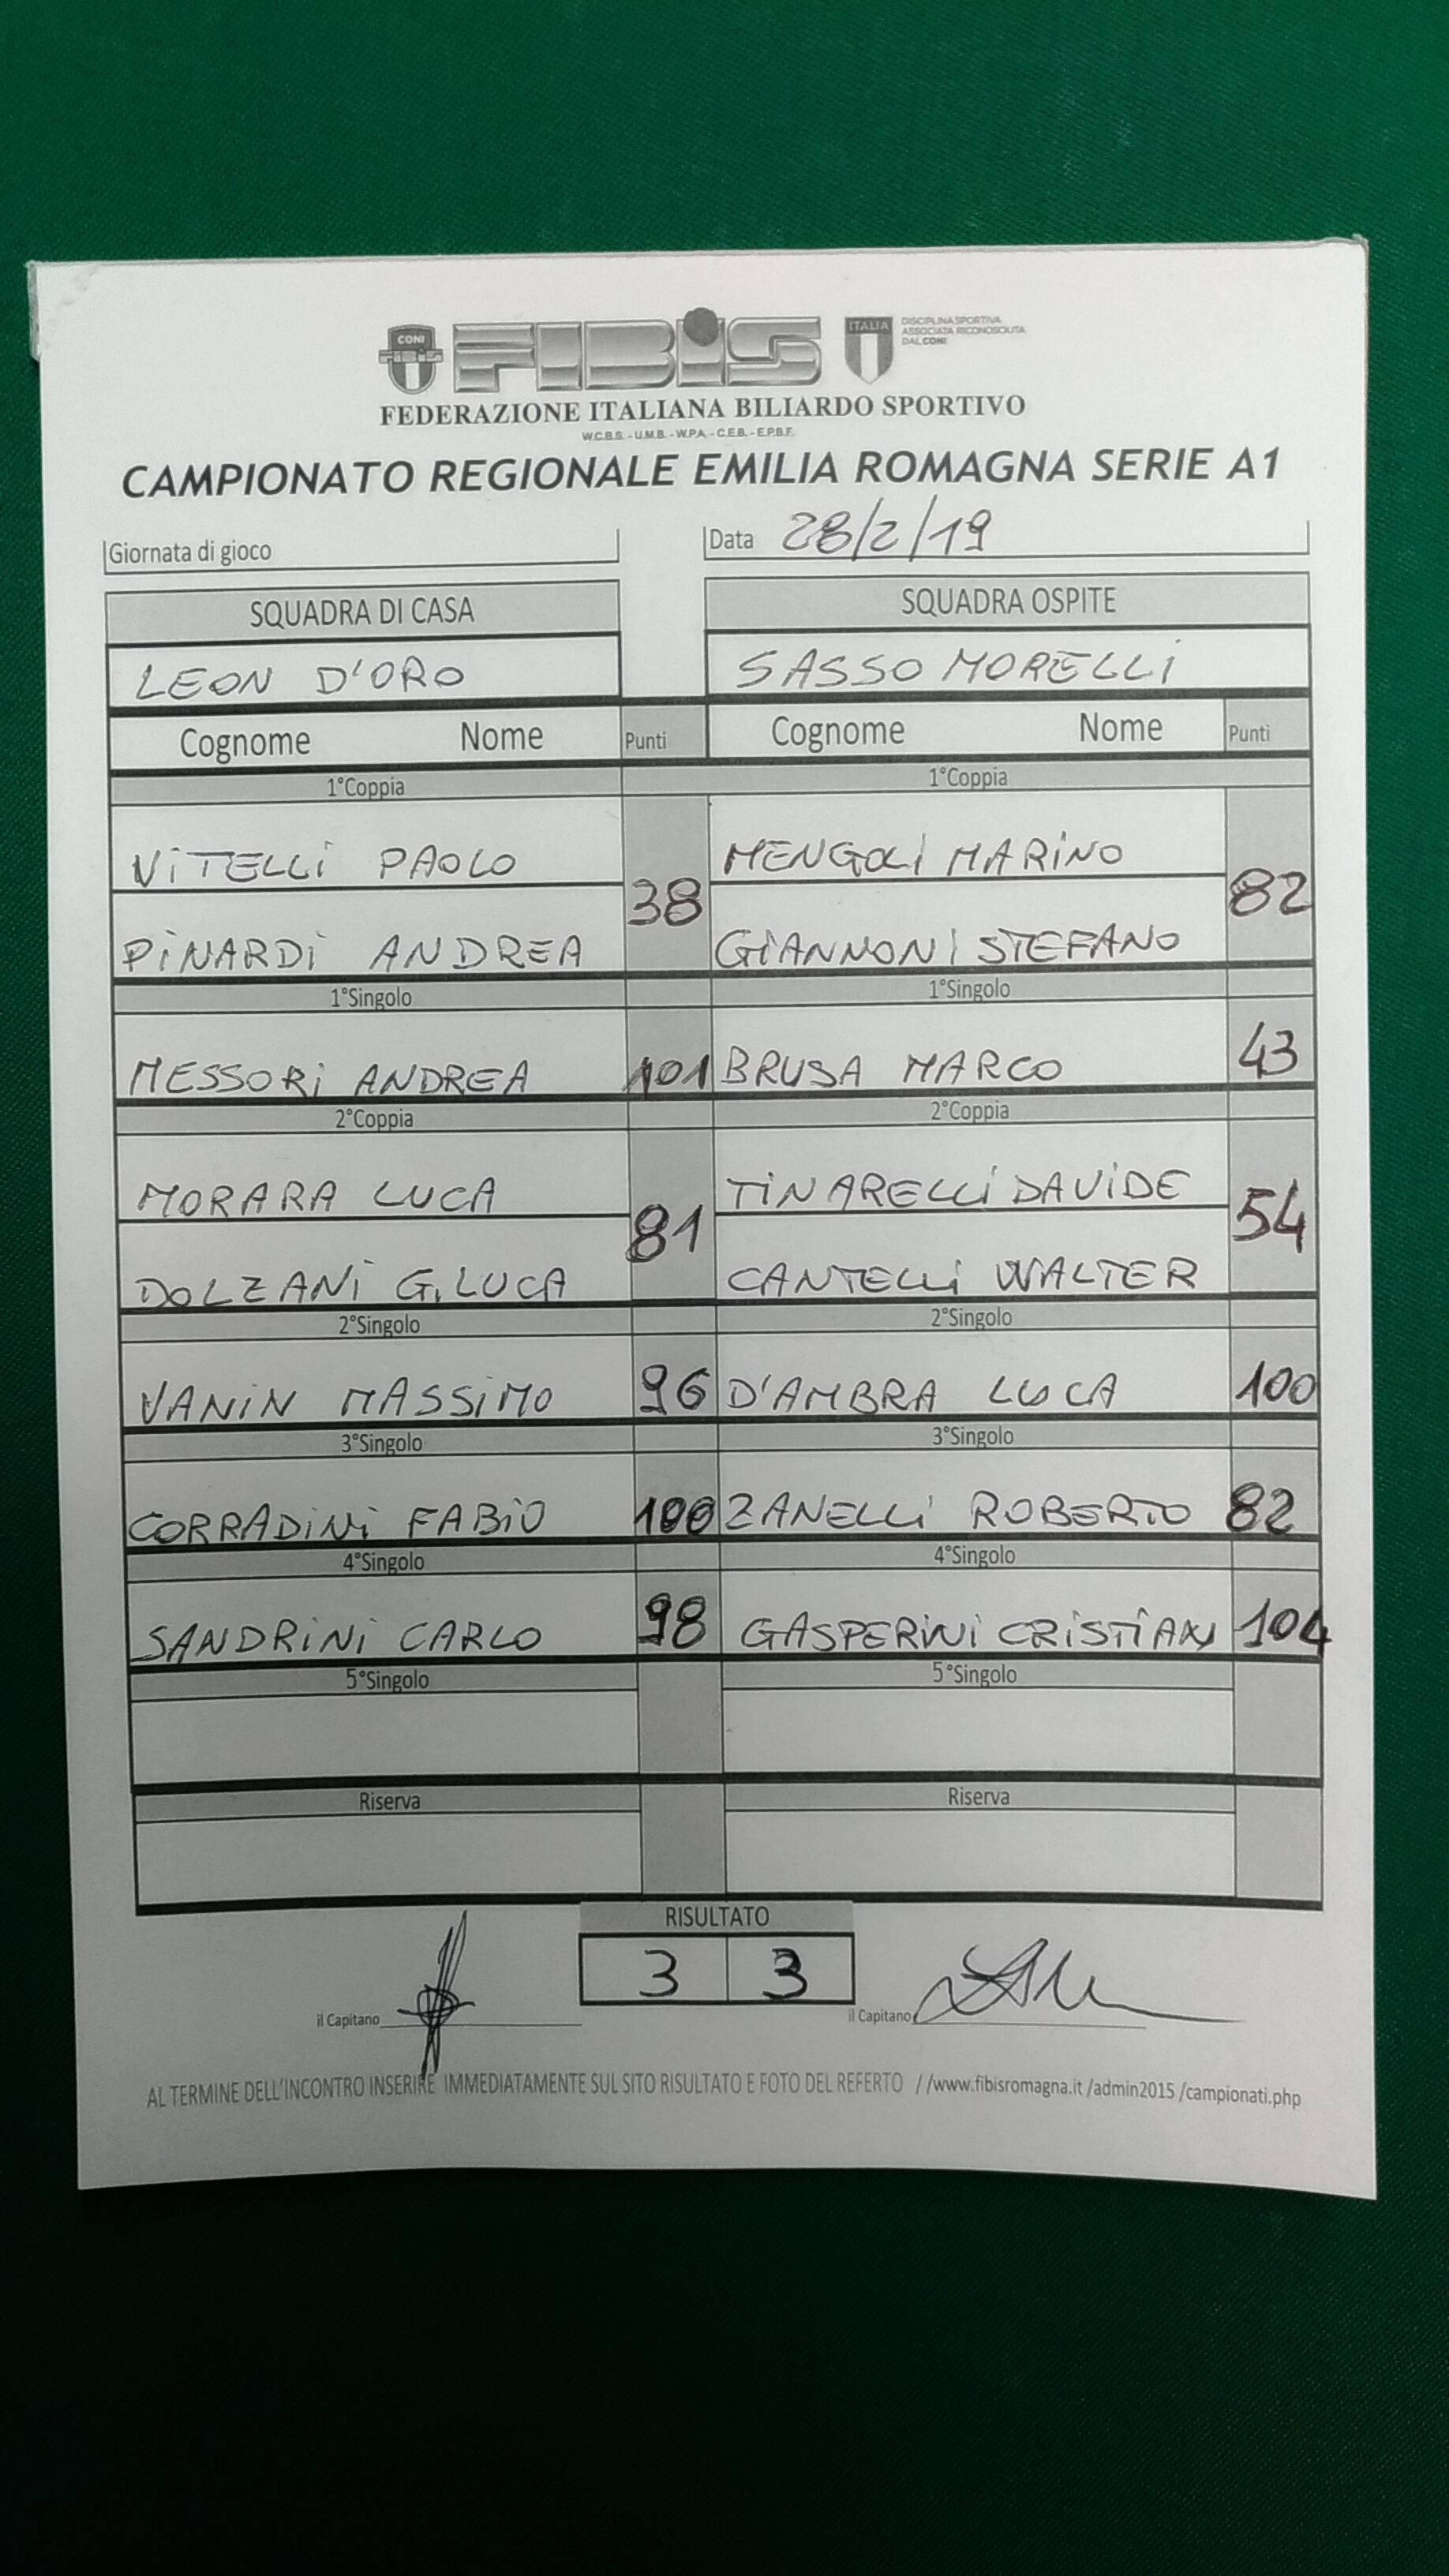 CONI
FIBiS
FIBiS
ITALIA
DISCIPLINA SPORTIVA
ASSOCIATA RICONOSCIUTA
DAL CONI
FEDERAZIONE ITALIANA BILIARDO SPORTIVO
W.C.B.S. - U.M.B. - W.P.A. - C.E.B. - E.P.B.F.
CAMPIONATO REGIONALE EMILIA ROMAGNA SERIE A1
Giornata di gioco Data 28/2/19
SQUADRA DI CASA SQUADRA OSPITE
LEON D'ORO SASSO MORELLI
Cognome Nome Punti Cognome Nome Punti
1°Coppia 1°Coppia
VITELLI PAOLO 38 MENGOLI MARINO 82
PINARDI ANDREA GIANNONI STEFANO
1°Singolo 1°Singolo
MESSORI ANDREA 101 BRUSA MARCO 43
2°Coppia 2°Coppia
MORARA LUCA 81 TINARELLI DAVIDE 54
DOLZANI G.LUCA CANTELLI WALTER
2°Singolo 2°Singolo
VANIN MASSIMO 96 D'AMBRA LUCA 100
3°Singolo 3°Singolo
CORRADINI FABIO 100 ZANELLI ROBERTO 82
4°Singolo 4°Singolo
SANDRINI CARLO 98 GASPERINI CRISTIAN 104
5°Singolo 5°Singolo
Riserva Riserva
RISULTATO
3 3
il Capitano il Capitano
AL TERMINE DELL'INCONTRO INSERIRE IMMEDIATAMENTE SUL SITO RISULTATO E FOTO DEL REFERTO //www.fibisromagna.it /admin2015 /campionati.php